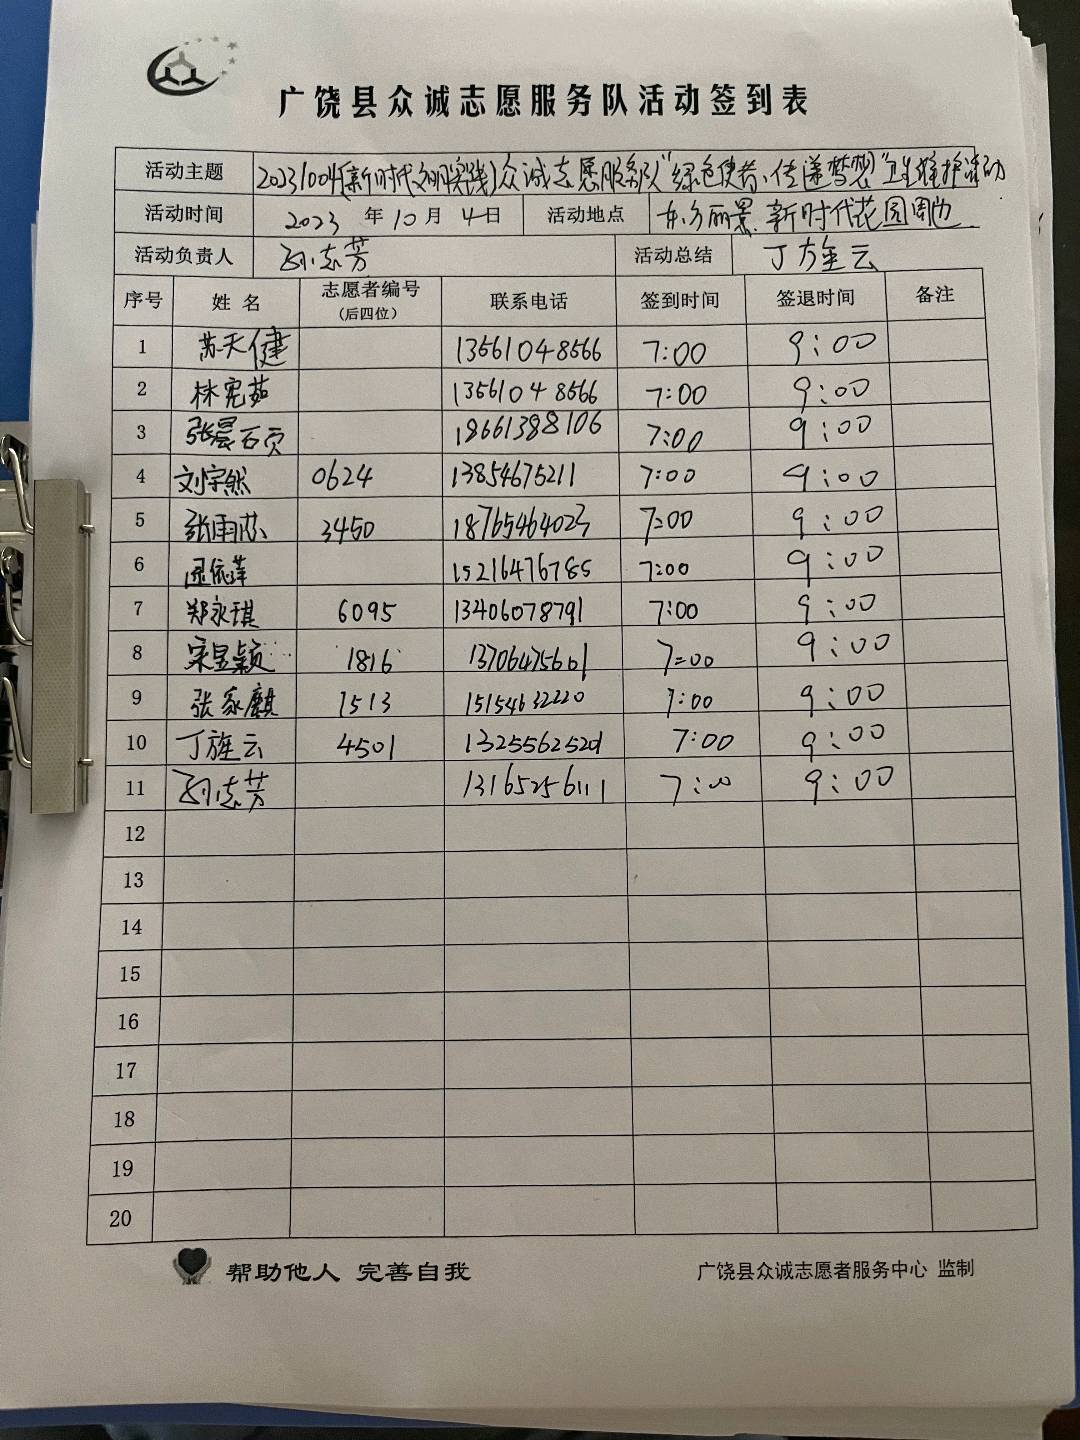 广饶县众诚志愿服务队活动签到表
活动主题 20231004[新时代文明实践]众诚志愿服务队“绿色使者、传递梦想”卫生维护活动
活动时间 2023 年 10 月 4 日 活动地点 东方丽景 新时代花园周边
活动负责人 孙志芳 活动总结 丁旌云
序号 姓 名 志愿者编号 (后四位) 联系电话 签到时间 签退时间 备注
1 苏天健 13561048566 7:00 9:00
2 林宪茹 13561048566 7:00 9:00
3 张晨硕 18661388106 7:00 9:00
4 刘宇然 0624 13854675211 7:00 9:00
5 张雨芯 3450 18765464023 7:00 9:00
6 15216476785 7:00 9:00
7 郑永琪 6095 13406078791 7:00 9:00
8 宋昱颖 1816 13706475601 7:00 9:00
9 张家麒 1513 15154632220 7:00 9:00
10 丁旌云 4501 13255625201 7:00 9:00
11 孙志芳 13165256111 7:00 9:00
12
13
14
15
16
17
18
19
20
帮助他人 完善自我 广饶县众诚志愿者服务中心 监制